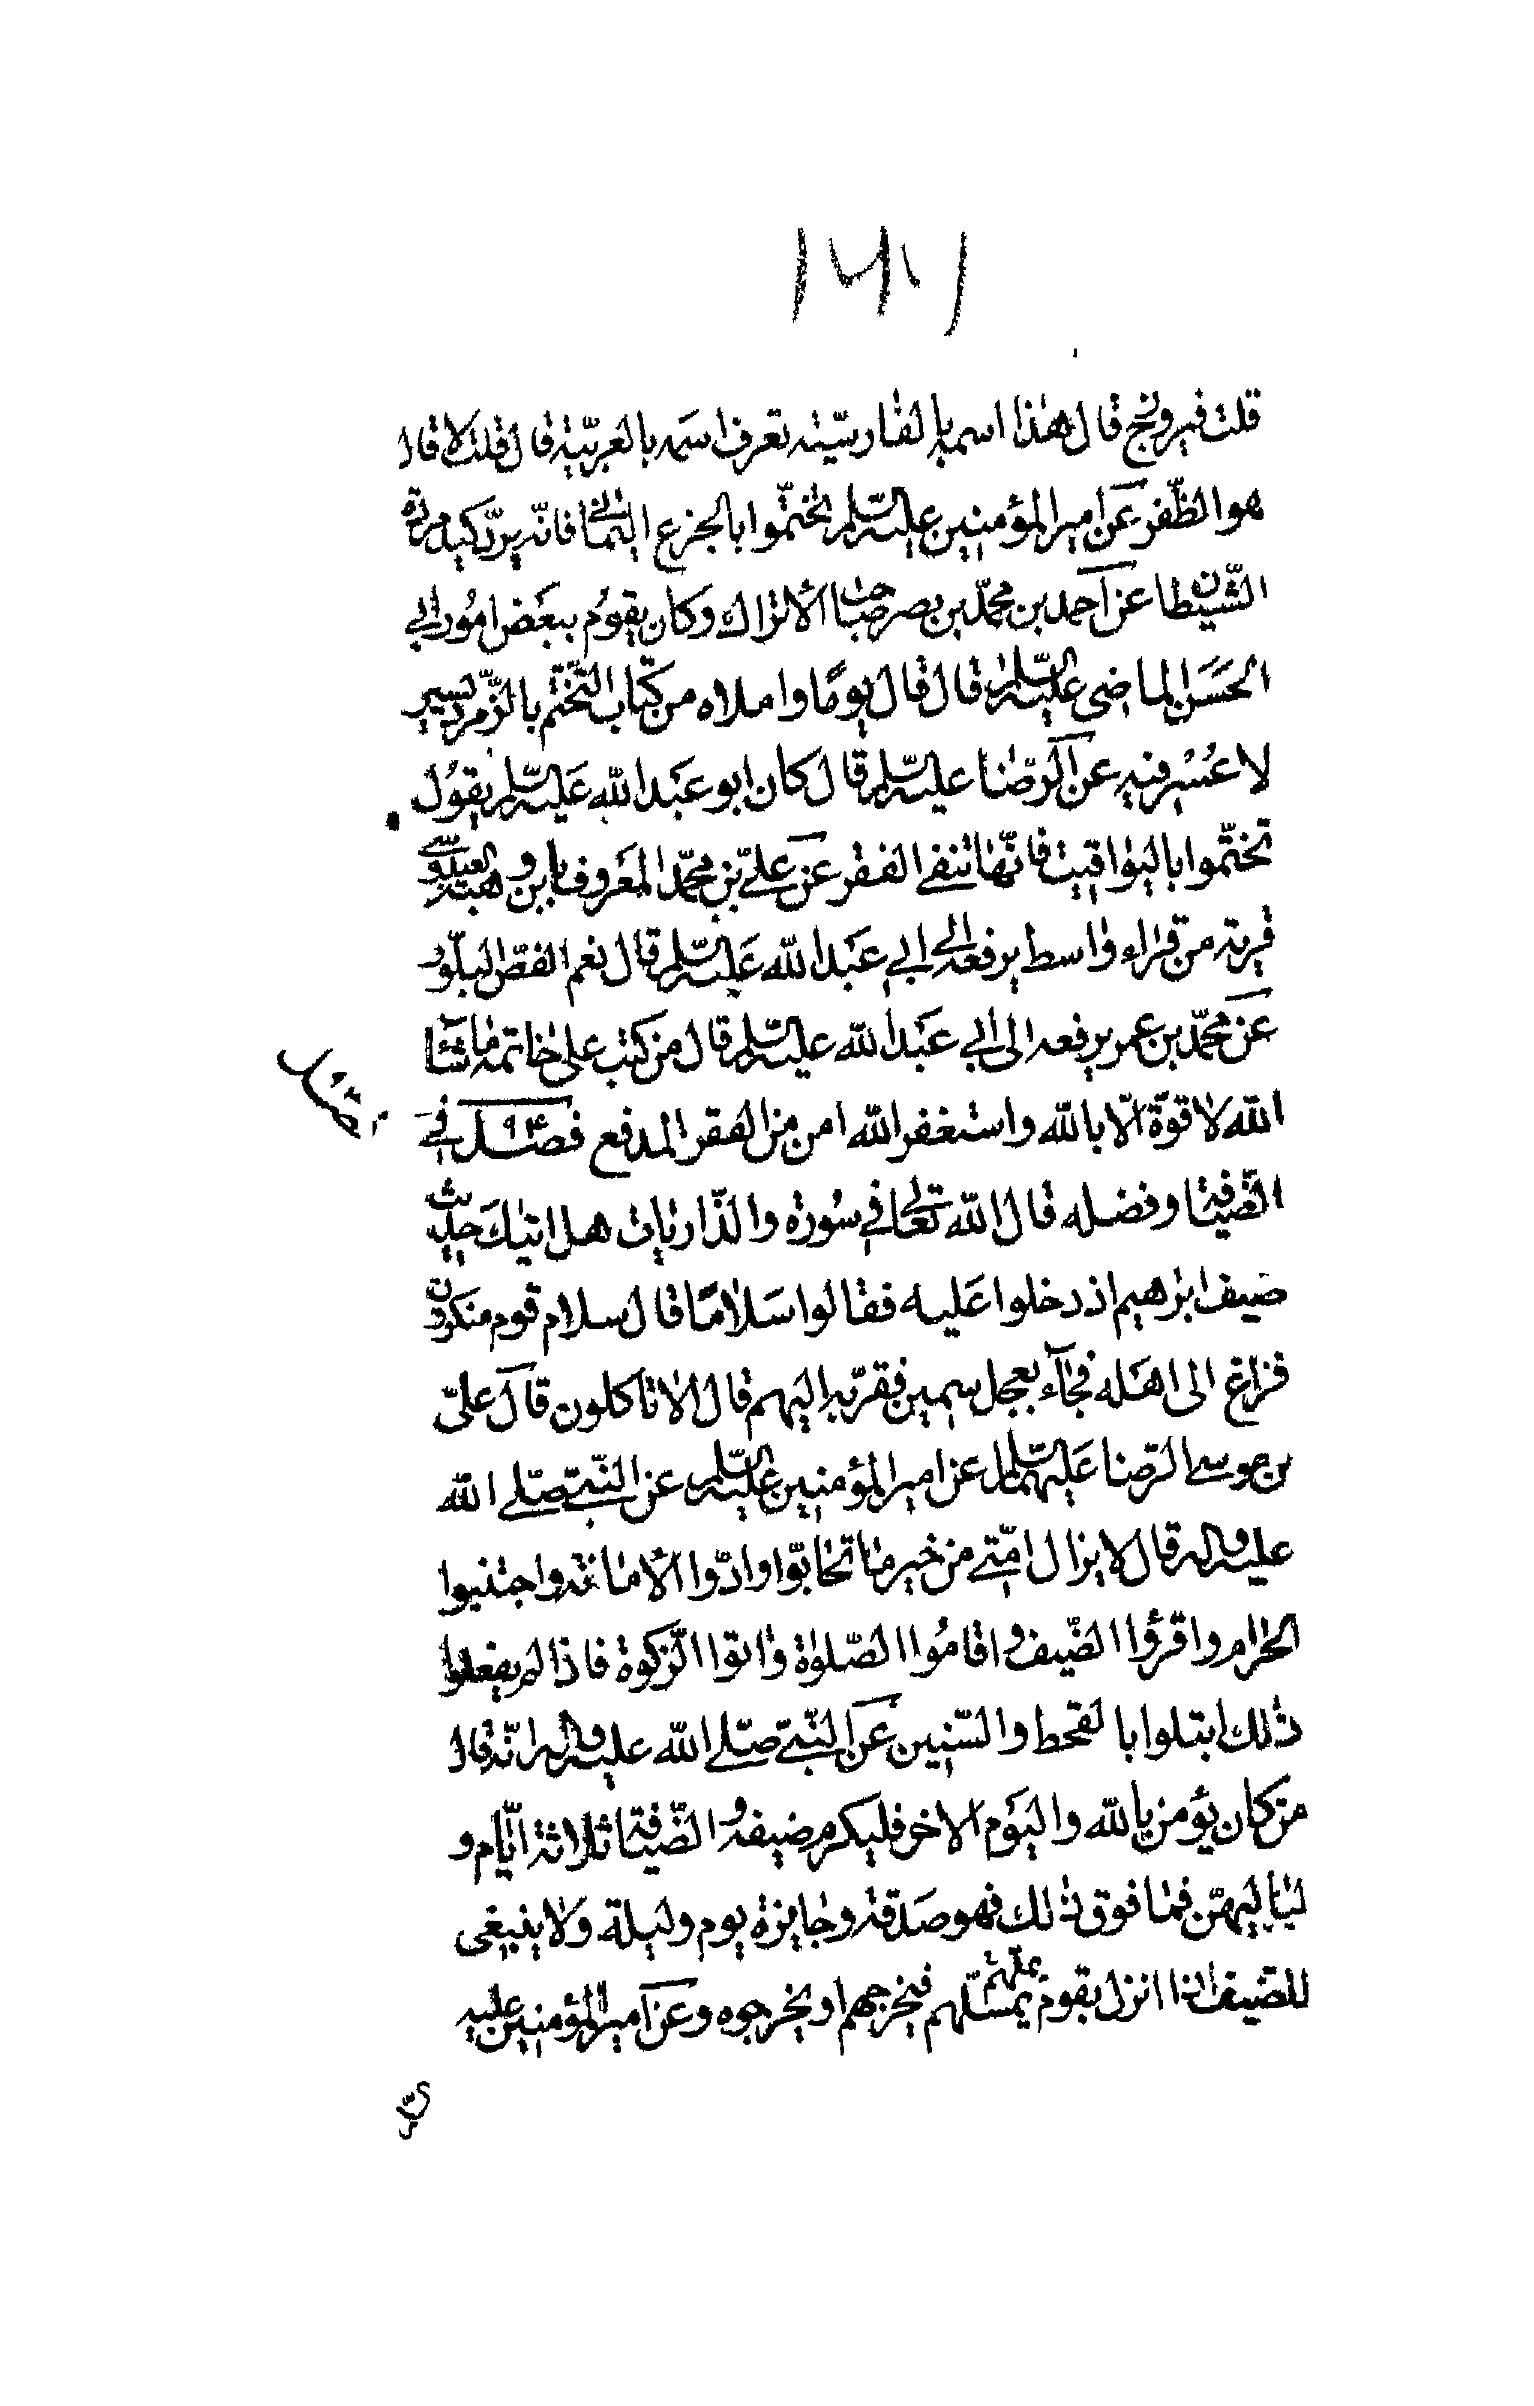 قلت فيروزج قال هذا اسمه بالفارسيّة تعرف اسمه بالعربيّة قال قلت لا قال
هو الظّفر عن امير المؤمنين عليه السّلم تختّموا بالجزع اليماني فانّه يردّ كيد مردة
الشّيطان عن احمد بن محمّد بن نصر صاحب الأنزال وكان يقوم ببعض امور ابي
الحسن الماضي عليه السّلم قال قال يومًا واملاه من كتاب التّختّم بالزّمرد يسير
لا عسر فيه عن الرّضا عليه السّلم قال كان ابو عبد الله عليه السّلم يقول
تختّموا باليواقيت فانّها تنفي الفقر عن عليّ بن محمّد المعروف بابن وهبة
قرية من قراء واسط يرفعه الى ابي عبد الله عليه السّلم قال نعم الفصّ البلّور
عن محمّد بن عمر يرفعه الى ابي عبد الله عليه السّلم قال من كتب على خاتمه ما شآء
الله لا قوّة الّا بالله واستغفر الله امن من الفقر المدقع فصل ٩٤ في
الضّيافة وفضله قال الله تعالى في سورة والذّاريات هل اتيك حديث
ضيف ابرهيم اذ دخلوا عليه فقالوا سلامًا قال سلام قوم منكرون
فراغ الى اهله فجآء بعجل سمين فقرّبه اليهم قال الا تاكلون قال عليّ
بن موسى الرّضا عليهما السّلم عن امير المؤمنين عليه السّلم عن النّبيّ صلّى الله
عليه واله قال لا يزال امّتي من خير ما تحابّوا وادّوا الأمانة واجتنبوا
الحرام واقرؤا الضّيف واقاموا الصّلوة واتوا الزّكوة فاذا لم يفعلوا
ذلك ابتلوا بالقحط والسّنين عن النّبيّ صلّى الله عليه واله انّه قال
من كان يؤمن بالله واليوم الاخر فليكرم ضيفه والضّيافة ثلاثة ايّام و
لياليهنّ فما فوق ذلك فهو صدقة وجايزة يوم وليلة ولا ينبغي
للضيف اذا انزل بقوم يملّهم فيخرجهم او يخرجوه وعن امير المؤمنين عليه